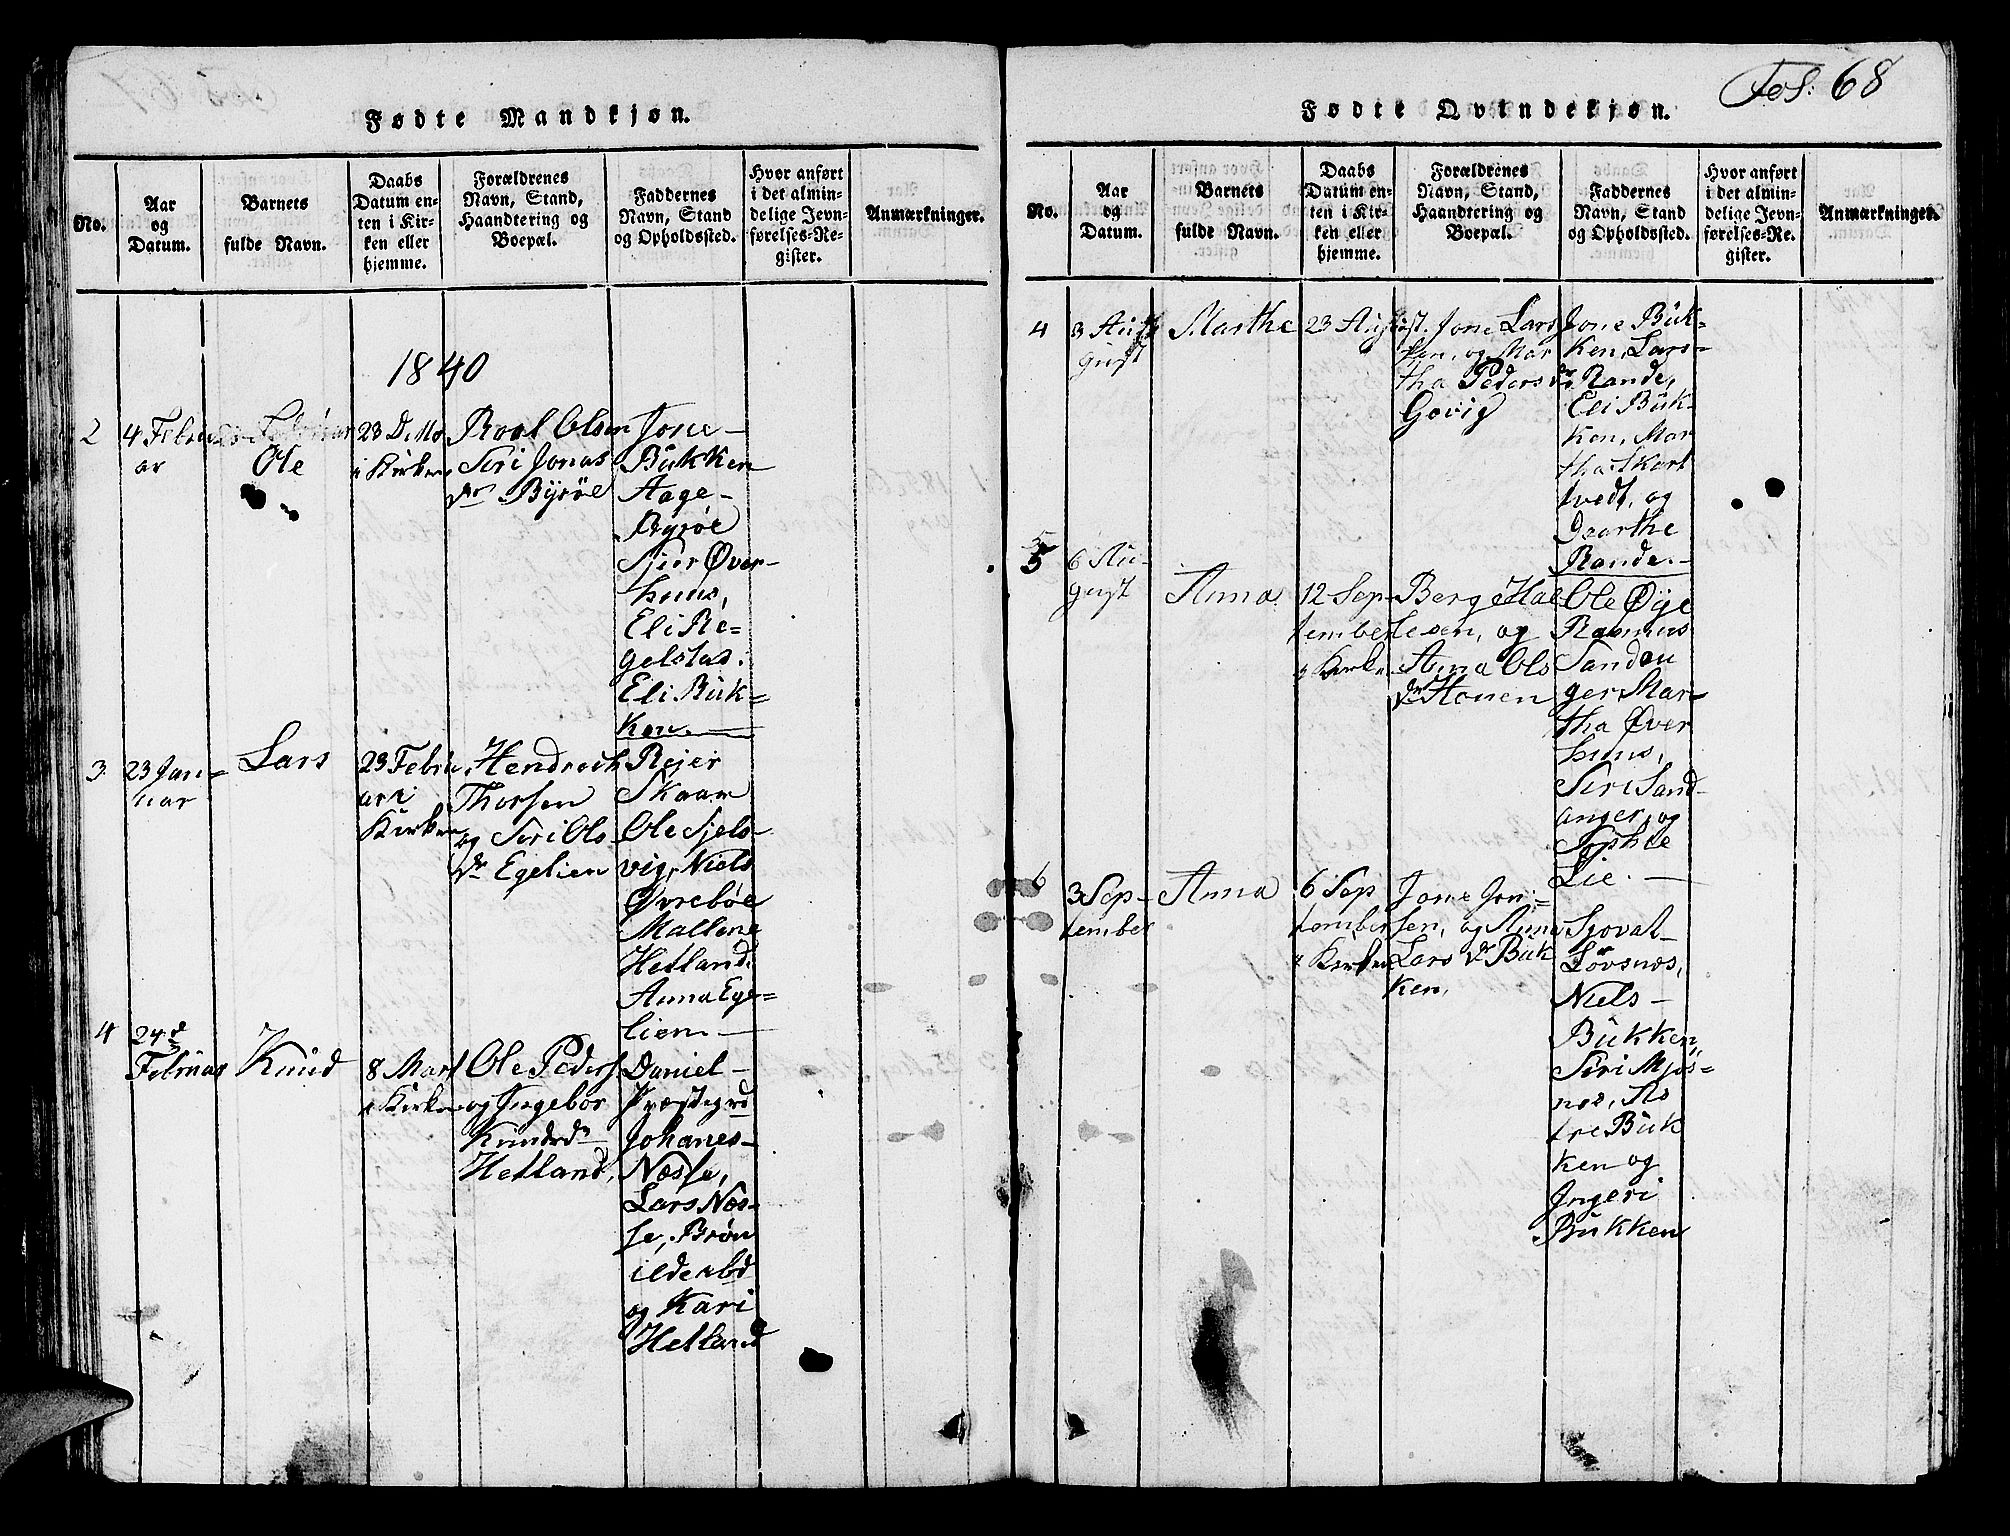 Fol: 68
Fødte Mandkjøn.
No.
Aar
og
Datum.
Barnets
fulde Navn.
Daabs
Datum en-
ten i Kir-
ken eller
hjemme.
Forældrenes
Navn, Stand,
Haandtering og
Boepæl.
Faddernes
Navn, Stand
og Opholdssted.
Hvor anført
i det almin-
delige Jevn-
førelses-Re-
gister.
Anmærkninger.
1840
2
4 Febru
ar
Ole
23 D. Mo
i Kirken
Roal Olsen
Siri Jonas
dr Byröe
Jone
Bukken
Aage
Byröe
Sjur Øver-
huus,
Eli Re-
gelstad.
Eli Buk-
ken
3
23 Jan-
uar
Lars
23 Febru
ar i
Kirken
Hendrich
Thorsen
og Siri Ols
dr Egelien
Rejer
Skaar
Ole Sjels-
vig, Niels
Øvrebøe
Mallene
Hetland.
Anna Ege-
lien
4
24d
Februar
Knud
8 Mart
i Kirken
Ole Peders
og Ingebor
Knudsdr
Hetland.
Daniel
Præstegrd
Johanes
Næsse,
Lars Næs-
se, Brøn
ilde ibd
og Kari
Hetland
Fødte Qvindekjøn.
No.
Aar
og
Datum.
Barnets
fulde Navn.
Daabs
Datum en-
ten i Kir-
ken eller
hjemme.
Forældrenes
Navn, Stand,
Haandtering og
Boepæl.
Faddernes
Navn, Stand
og Opholdssted.
Hvor anført
i det almin-
delige Jevn-
førelses-Re-
gister.
Anmærkninger.
4
3 Au
gust
Marthe
23 August.
Jone Lars
sen, og Mar
tha Peders dr
Govig
Jone Buk-
ken, Lars
Rande,
Eli Buk-
ken, Mar
tha Skort
tvedt, og
Daarthe
Rande.
5
6 Au-
gust
Anna
12 Sep-
tember
i Kirken
Berge Hal
lesen, og
Anna Ols
dr Houen
Ole Øye
Rasmus
Sandan
ger, Mar-
tha Øver
huus,
Siri Sand-
anger, og
Sophie
Lie.
6
3 Sep-
tember
Anna
6 Sep
tember
i Kirken
Jone Jon-
sen, og Anna
Lars dr Buk
ken,
Sjovat
Lövsnæs,
Niels
Bukken,
Siri Mjös-
næs, As
tre Buk
ken og
Ingeri
Bukken